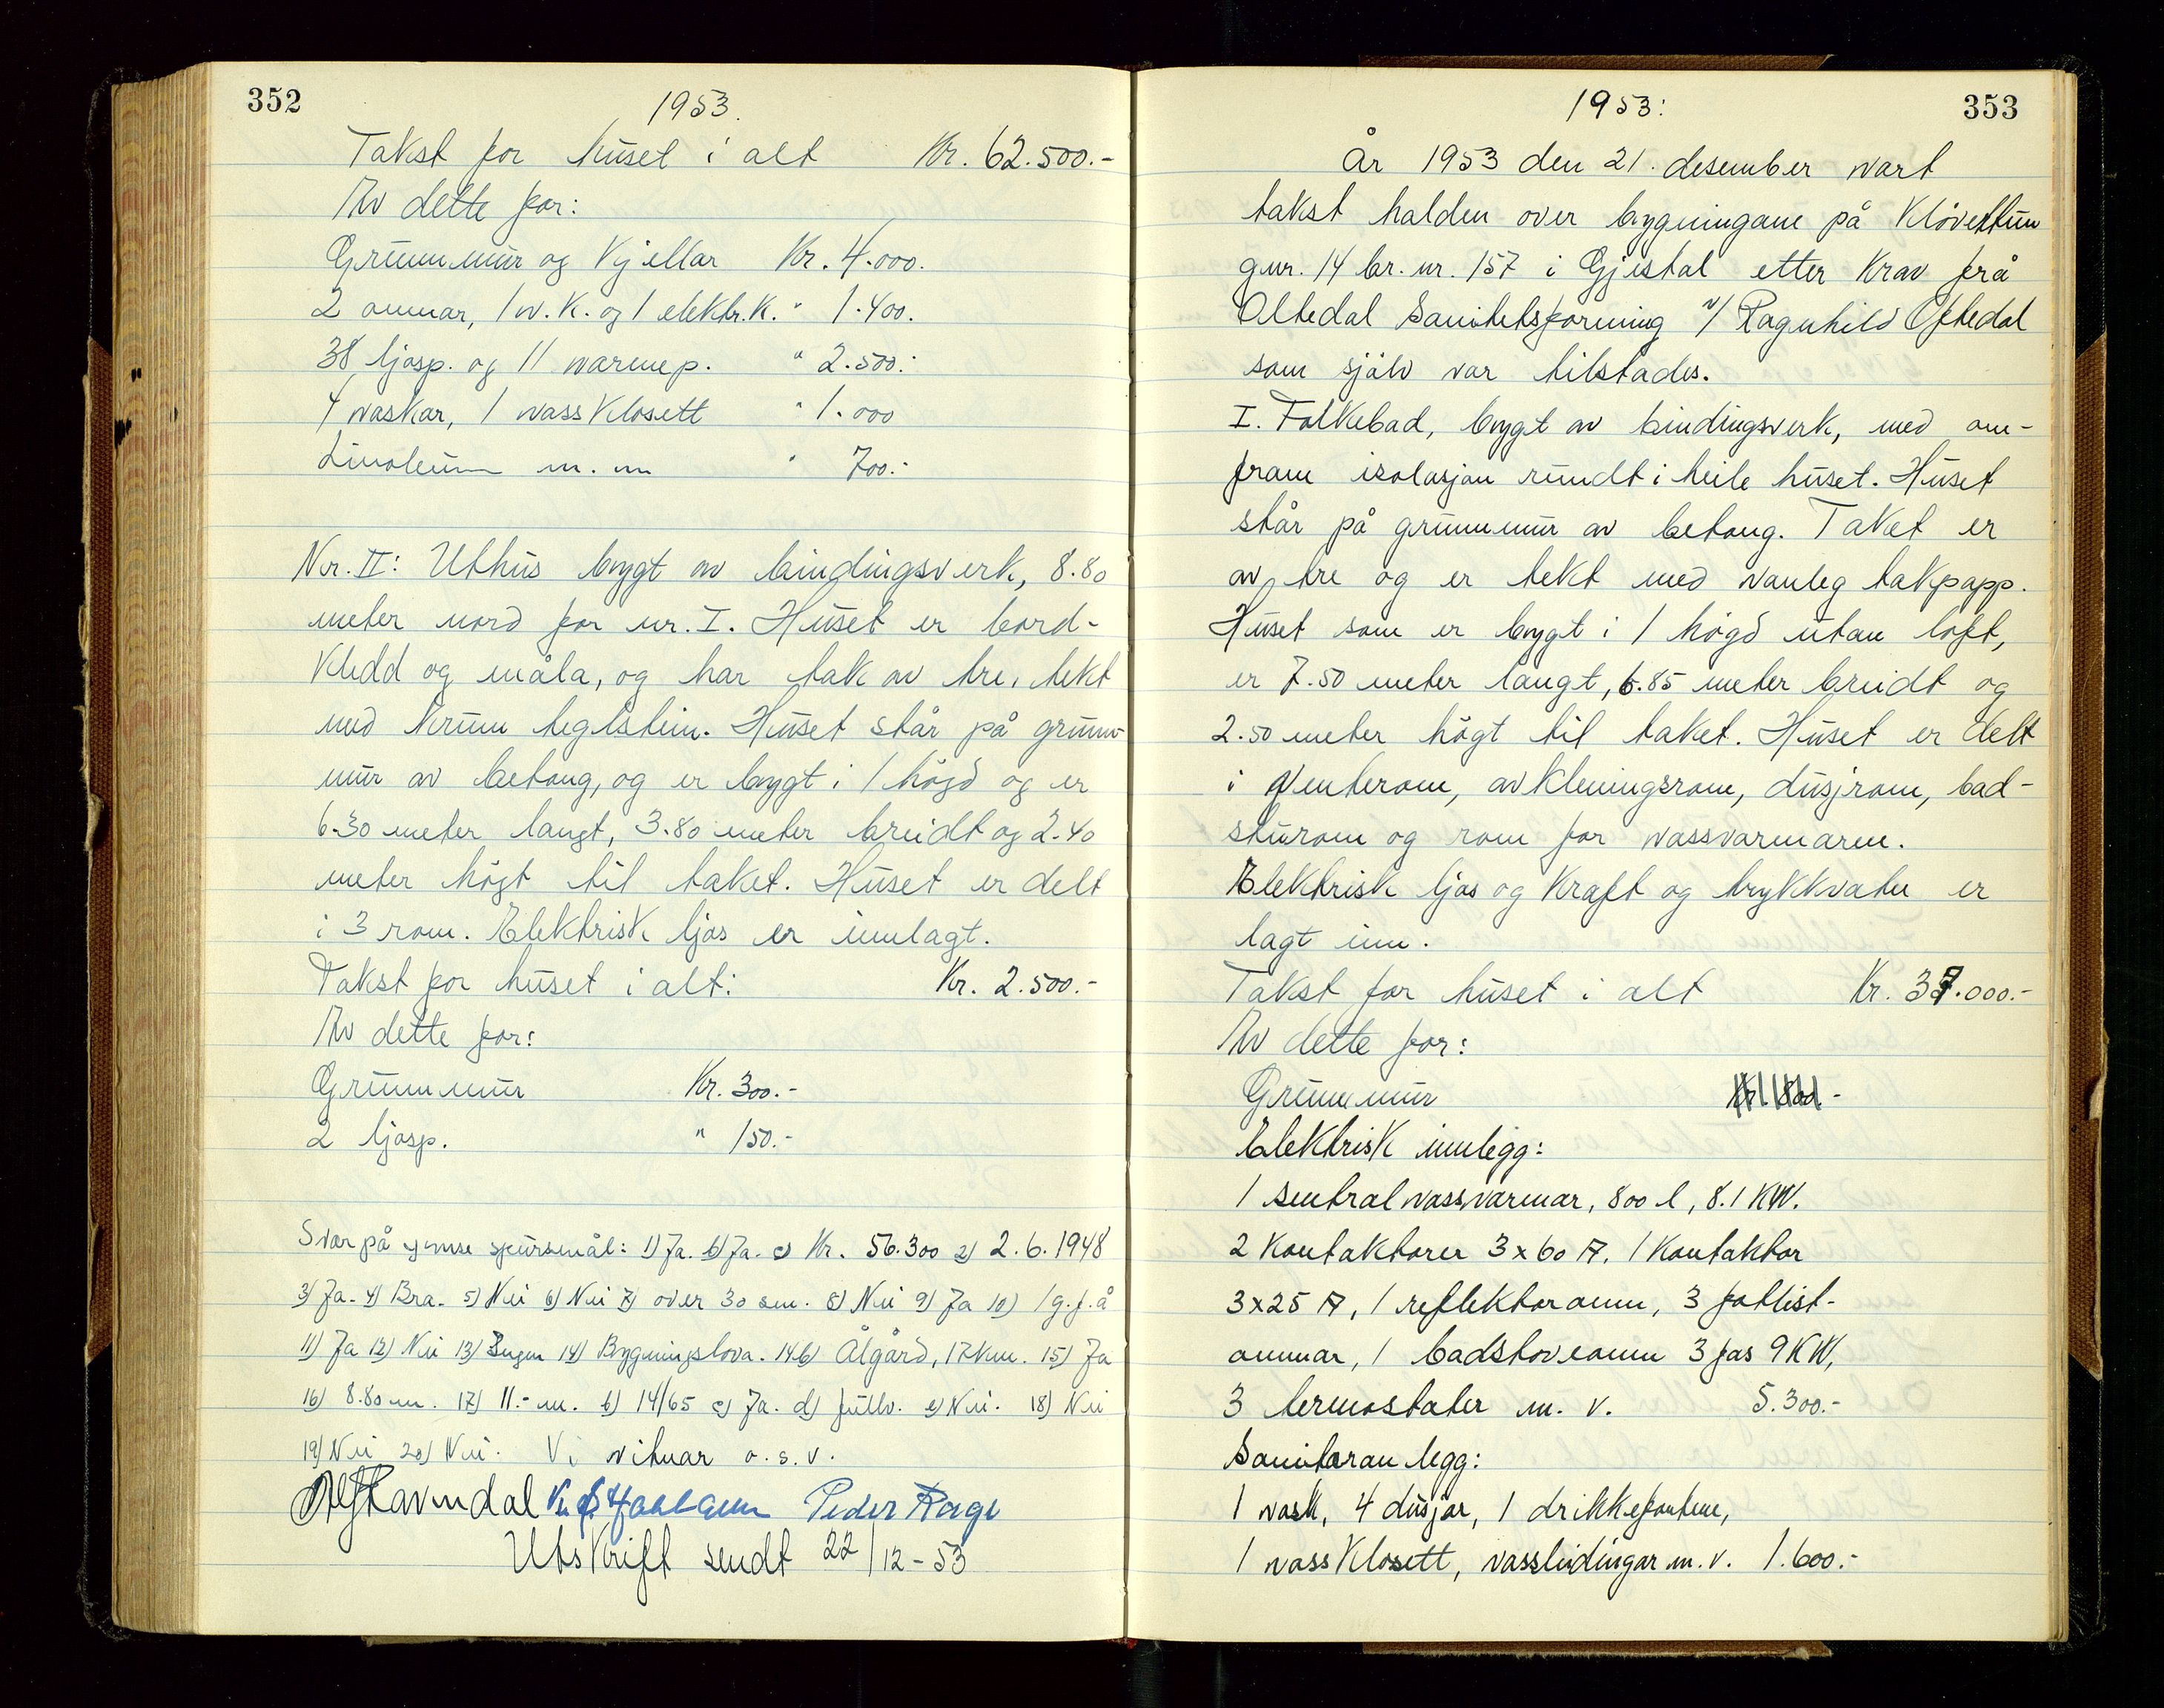 352
1953.
Takst for huset i alt Kr. 62.500.-
Av dette for:
Grunnmur og Kjellar Kr. 4.000.
2 omnar, 1 v.k. og 1 elektr.k. " 1.400.
38 ljosp. og 11 varmep. " 2.500.-
4 vaskar, 1 vassklosett " 1.000
Linoleum m.m " 700.-
Nr. II: Uthus bygt av bindingsverk, 8.80
meter nord for nr. I. Huset er bord-
kledd og måla, og har tak av tre, tekt
med krum teglstein. Huset står på grunn-
mur av betong, og er bygt i 1 høgd og er
6.30 meter langt, 3.80 meter breidt og 2.40
meter høgt til taket. Huset er delt
i 3 rom. Elektrisk ljos er innlagt.
Takst for huset i alt: Kr. 2.500.-
Av dette for:
Grunnmur Kr. 300.-
2 ljosp. " 150.-
Svar på ymse spursmål: 1) Ja. b) Ja. c) Kr. 56.300 2) 2.6.1948
3) Ja. 4) Bra. 5) Nei 6) Nei 7) over 30 sm. 8) Nei 9) Ja 10) 1 g.f.å
11) Ja 12) Nei 13) Ingen 14) Bygningslova. 14b) Ålgård, 17 km. 15) Ja
16) 8.80 m. 17) 11.- m. b) 14/65 c) Ja. d) fullv. e) Nei. 18) Nei
19) Nei 20) Nei. Vi vitnar o.s.v.
Peder Rage
Utskrift sendt 22/12-53
353
1953:
År 1953 den 21. desember vart
takst halden over bygningane på Kløvertun
gnr. 14 br. nr. 157 i Gjestal etter krav frå
Oltedal Sanitetsforening v/ Ragnhild Oftedal
som sjølv var tilstades.
I. Folkebad, bygt av bindingsverk, med om-
fram isolasjon rundt i heile huset. Huset
står på grunnmur av betong. Taket er
av tre og er tekt med vanleg takpapp.
Huset som er bygt i 1 høgd utan loft,
er 7.50 meter langt, 6.85 meter breidt og
2.50 meter høgt til taket. Huset er delt
i venterom, avkleningsrom, dusjrom, bad-
sturom og rom for vassvarmaren.
Elektrisk ljos og kraft og trykkvatn er
lagt inn.
Takst for huset i alt Kr. 37.000.-
Av dette for:
Grunnmur
Elektrisk innlegg:
1 sentralvassvarmar, 800 l, 8.1 KW.
2 kontaktorer 3x60 A, 1 kontaktor
3x25 A, 1 reflektoromn, 3 fotlist-
omnar, 1 badstoveomn 3 fas 9 KW,
3 termostater m.v. 5.300.-
Sanitæranlegg:
1 vask, 4 dusjar, 1 drikkefontene,
1 vassklosett, vassleidingar m.v. 1.600.-